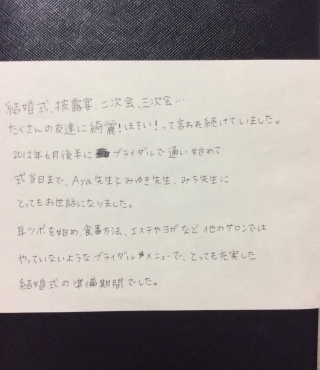 結婚式、披露宴、二次会、三次会…
たくさんの友達に綺麗!ほそい!って言われ続けていました。
2012年6月後半にブライダルで通い始めて
式当日まで、Aya先生とみゆき先生、みち先生に
とってもお世話になりました。
耳ツボを始め、食事方法、エステやヨガなど他のサロンでは
やっていないようなブライダルメニューで、とっても充実した
結婚式の準備期間でした。